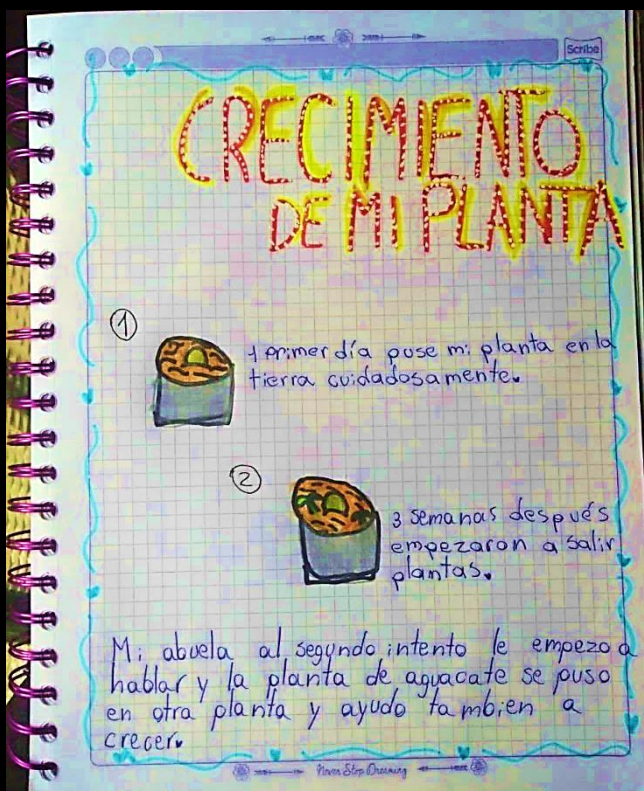 Scribe
CRECIMIENTO
DE MI PLANTA
1
1 Primer día puse mi planta en la
tierra cuidadosamente.
2
3 semanas después
empezaron a salir
plantas.
Mi abuela al segundo intento le empezo a
hablar y la planta de aguacate se puso
en otra planta y ayudo tambien a
crecer.
Never Stop Dreaming